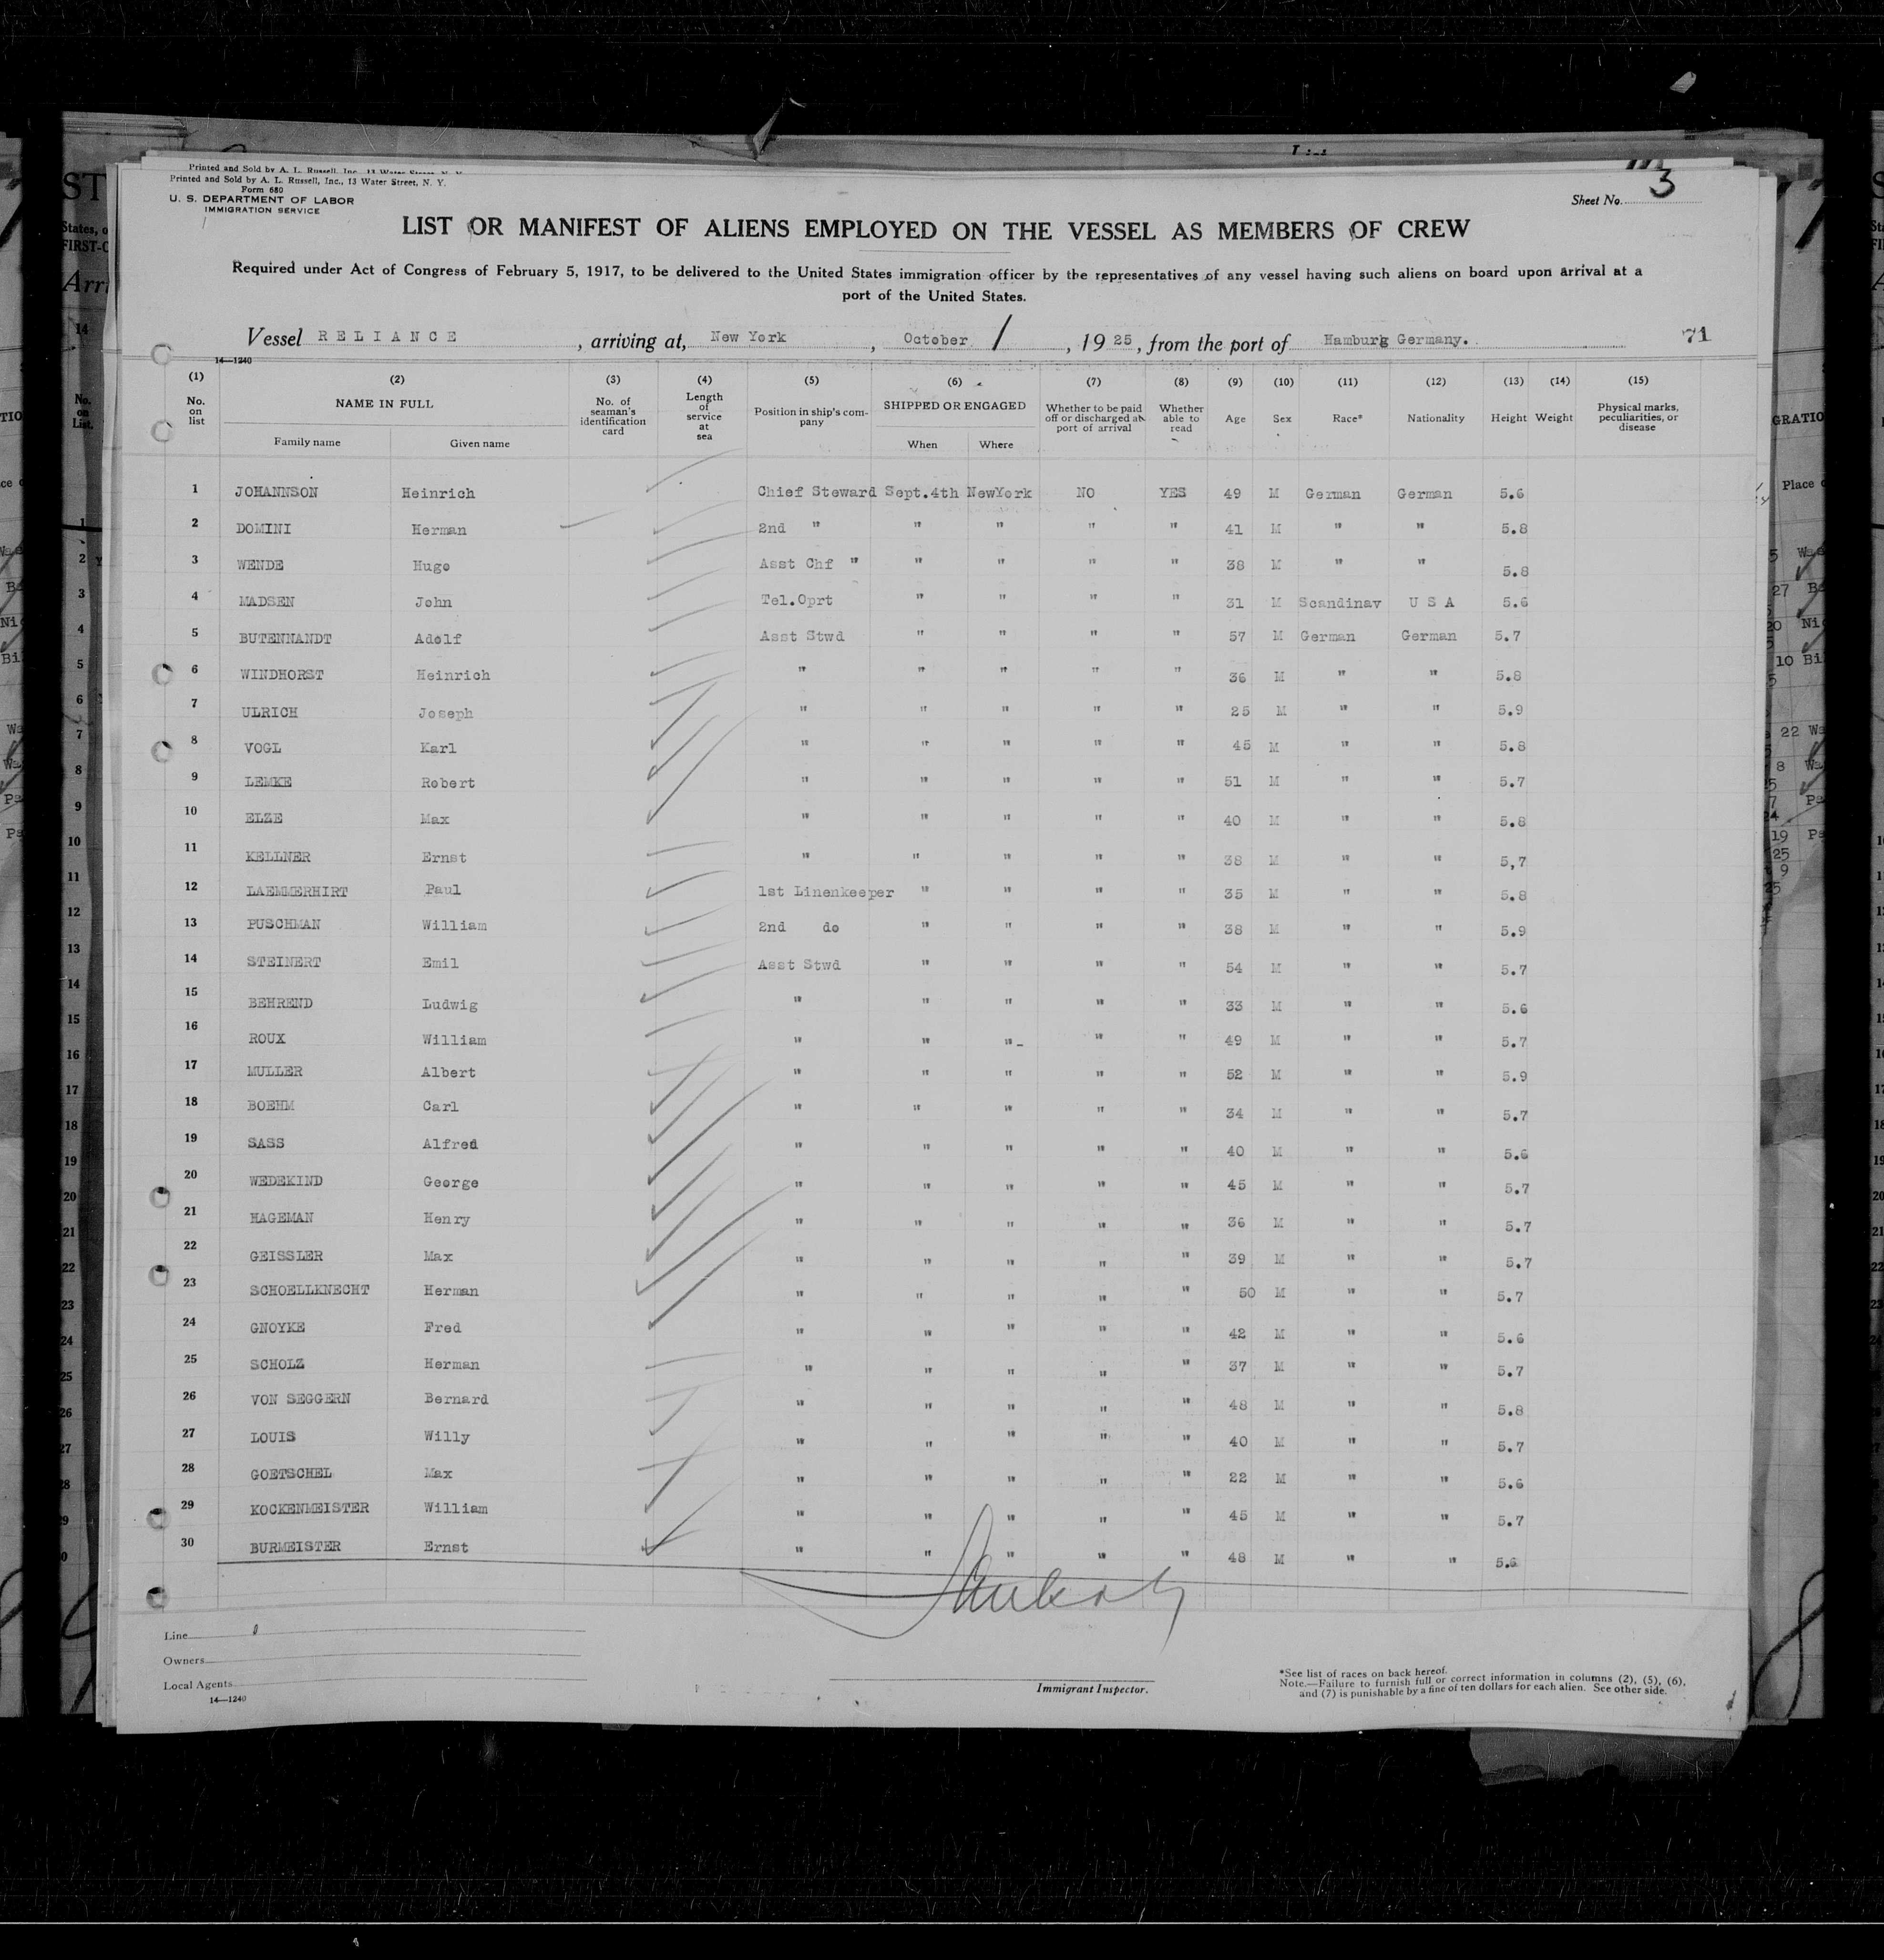 Printed and Sold by A. L. Russell, Inc., 13 Water Street, N. Y.
Form 680
U. S. DEPARTMENT OF LABOR
IMMIGRATION SERVICE
Sheet No. 3
LIST OR MANIFEST OF ALIENS EMPLOYED ON THE VESSEL AS MEMBERS OF CREW
Required under Act of Congress of February 5, 1917, to be delivered to the United States immigration officer by the representatives of any vessel having such aliens on board upon arrival at a
port of the United States.
Vessel RELIANCE, arriving at, New York, October 1, 1925, from the port of Hamburg Germany. 71
14—1240
(1) (2) (3) (4) (5) (6) (7) (8) (9) (10) (11) (12) (13) (14) (15)
No. on list NAME IN FULL Family name Given name No. of seaman's identification card Length of service at sea Position in ship's company SHIPPED OR ENGAGED When Where Whether to be paid off or discharged at port of arrival Whether able to read Age Sex Race* Nationality Height Weight Physical marks, peculiarities, or disease
1 JOHANNSON Heinrich Chief Steward Sept.4th NewYork NO YES 49 M German German 5.6
2 DOMINI Herman 2nd " " " " " 41 M " " 5.8
3 WENDE Hugo Asst Chf " " " " " 38 M " " 5.8
4 MADSEN John Tel.Oprt " " " " 31 M Scandinav U S A 5.6
5 BUTENNANDT Adolf Asst Stwd " " " " 57 M German German 5.7
6 WINDHORST Heinrich " " " " " 36 M " " 5.8
7 ULRICH Joseph " " " " " 25 M " " 5.9
8 VOGL Karl " " " " " 45 M " " 5.8
9 LEMKE Robert " " " " " 51 M " " 5.7
10 ELZE Max " " " " " 40 M " " 5.8
11 KELLNER Ernst " " " " " 38 M " " 5,7
12 LAEMMERHIRT Paul 1st Linenkeeper " " " " 35 M " " 5.8
13 PUSCHMAN William 2nd do " " " " 38 M " " 5.9
14 STEINERT Emil Asst Stwd " " " " 54 M " " 5.7
15 BEHREND Ludwig " " " " " 33 M " " 5.6
16 ROUX William " " "- " " 49 M " " 5.7
17 MULLER Albert " " " " " 52 M " " 5.9
18 BOEHM Carl " " " " " 34 M " " 5.7
19 SASS Alfred " " " " " 40 M " " 5.6
20 WEDEKIND George " " " " " 45 M " " 5.7
21 HAGEMAN Henry " " " " " 36 M " " 5.7
22 GEISSLER Max " " " " " 39 M " " 5.7
23 SCHOELLKNECHT Herman " " " " " 50 M " " 5.7
24 GNOYKE Fred " " " " " 42 M " " 5.6
25 SCHOLZ Herman " " " " " 37 M " " 5.7
26 VON SEGGERN Bernard " " " " " 48 M " " 5.8
27 LOUIS Willy " " " " " 40 M " " 5.7
28 GOETSCHEL Max " " " " " 22 M " " 5.6
29 KOCKENMEISTER William " " " " " 45 M " " 5.7
30 BURMEISTER Ernst " " " " " 48 M " " 5.6
Line
Owners
Local Agents
14—1240
Immigrant Inspector.
*See list of races on back hereof.
Note.—Failure to furnish full or correct information in columns (2), (5), (6),
and (7) is punishable by a fine of ten dollars for each alien. See other side.